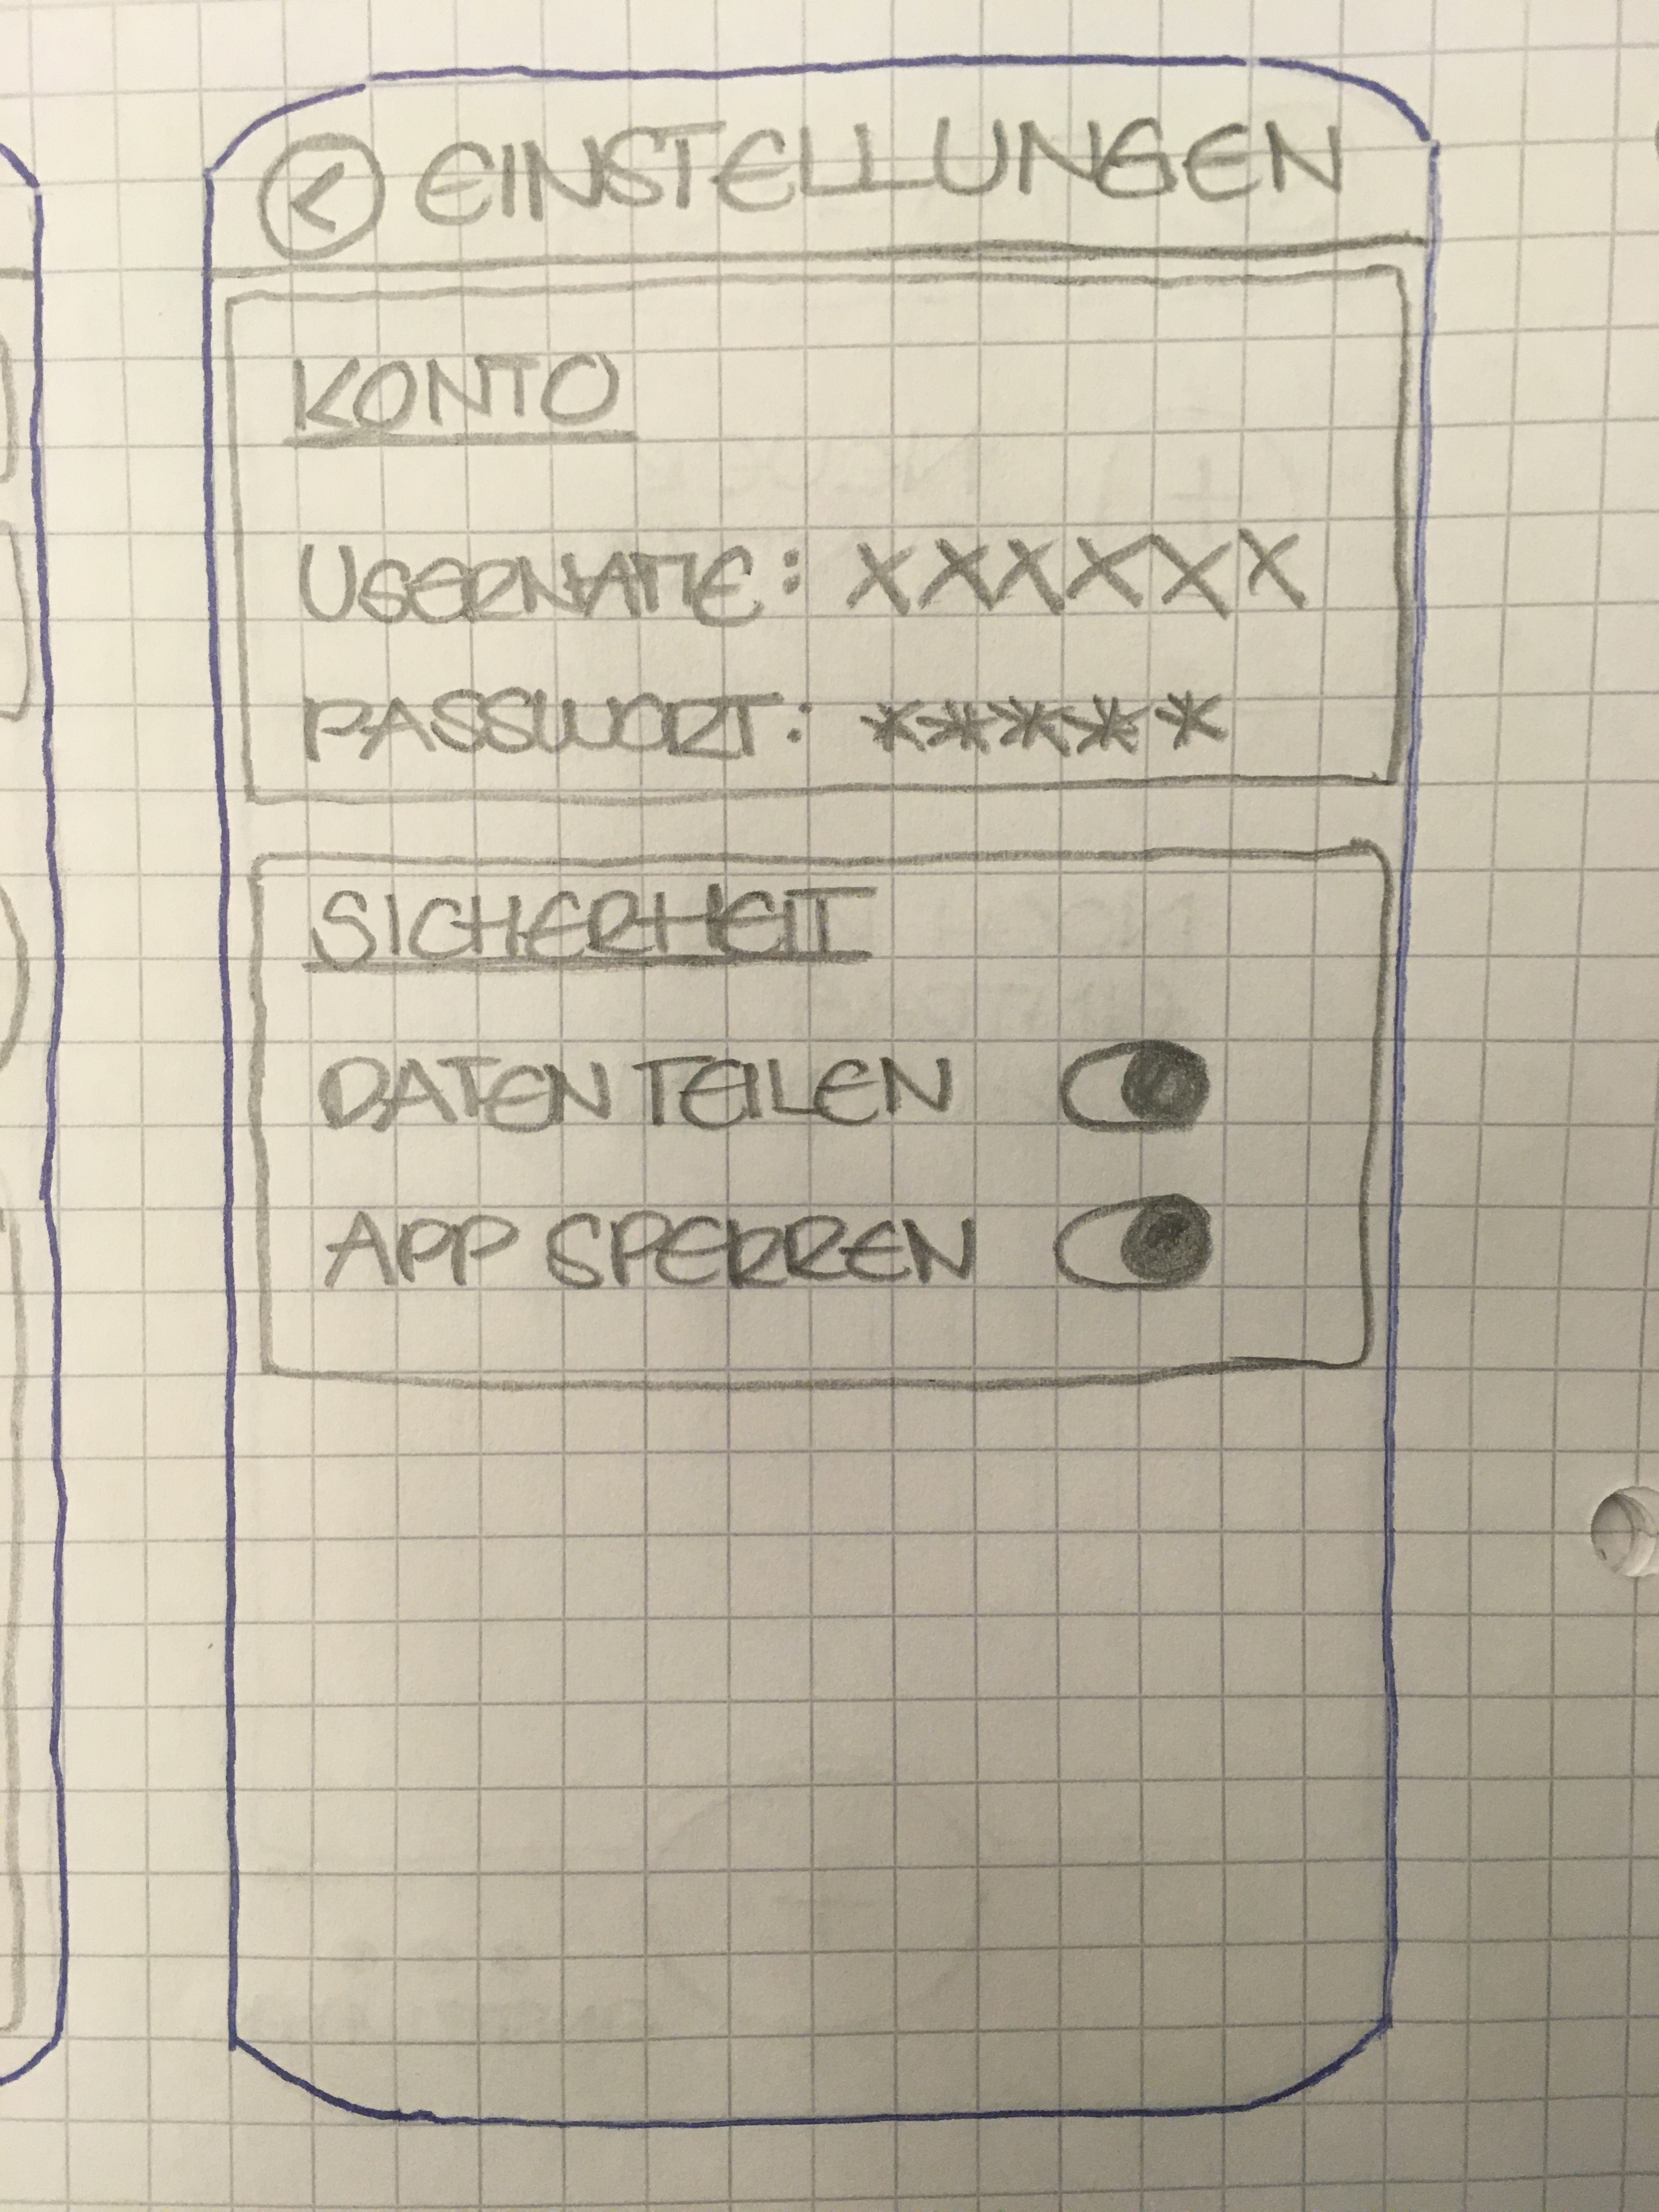 < EINSTELLUNGEN
KONTO
USERNAME: XXXXXX
PASSWORT: *****
SICHERHEIT
DATEN TEILEN
APP SPERREN